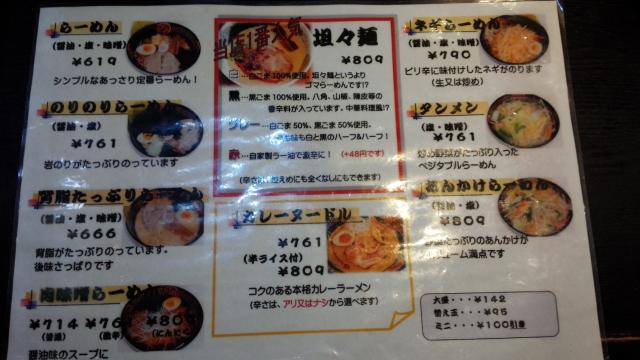 らーめん
(醤油・塩・味噌)
¥619
シンプルなあっさり定番らーめん!
のりのりらーめん
(醤油・塩)
¥761
岩のりがたっぷりのっています
背脂たっぷりらーめん
(醤油・塩・味噌)
¥666
背脂がたっぷりのっています。
後味さっぱりです
肉味噌らーめん
¥714
醤油味のスープに
当店1番人気
坦々麺
¥809
白ごま100%使用。坦々麺というより
ゴマらーめんです!?
黒…黒ごま100%使用。八角、山椒、陳皮等の
香辛料が入っています。中華料理風!?
グレー…白ごま50%、黒ごま50%使用。
味も白と黒のハーフ&ハーフ!
赤…自家製ラー油で激辛に! (+48円です)
(辛さは、控えめにも全くなしにもできます)
カレーヌードル
¥761
(半ライス付)
¥809
コクのある本格カレーラーメン
(辛さは、アリ又はナシから選べます)
ネギらーめん
(醤油・塩・味噌)
¥790
ピリ辛に味付けしたネギがのります
(生又は炒め)
タンメン
(塩・味噌)
¥761
炒め野菜がたっぷり入った
ベジタブルらーめん
あんかけらーめん
¥809
野菜たっぷりのあんかけが
ボリューム満点です
大盛・・・¥142
替え玉・・・¥95
ミニ・・・¥100引き